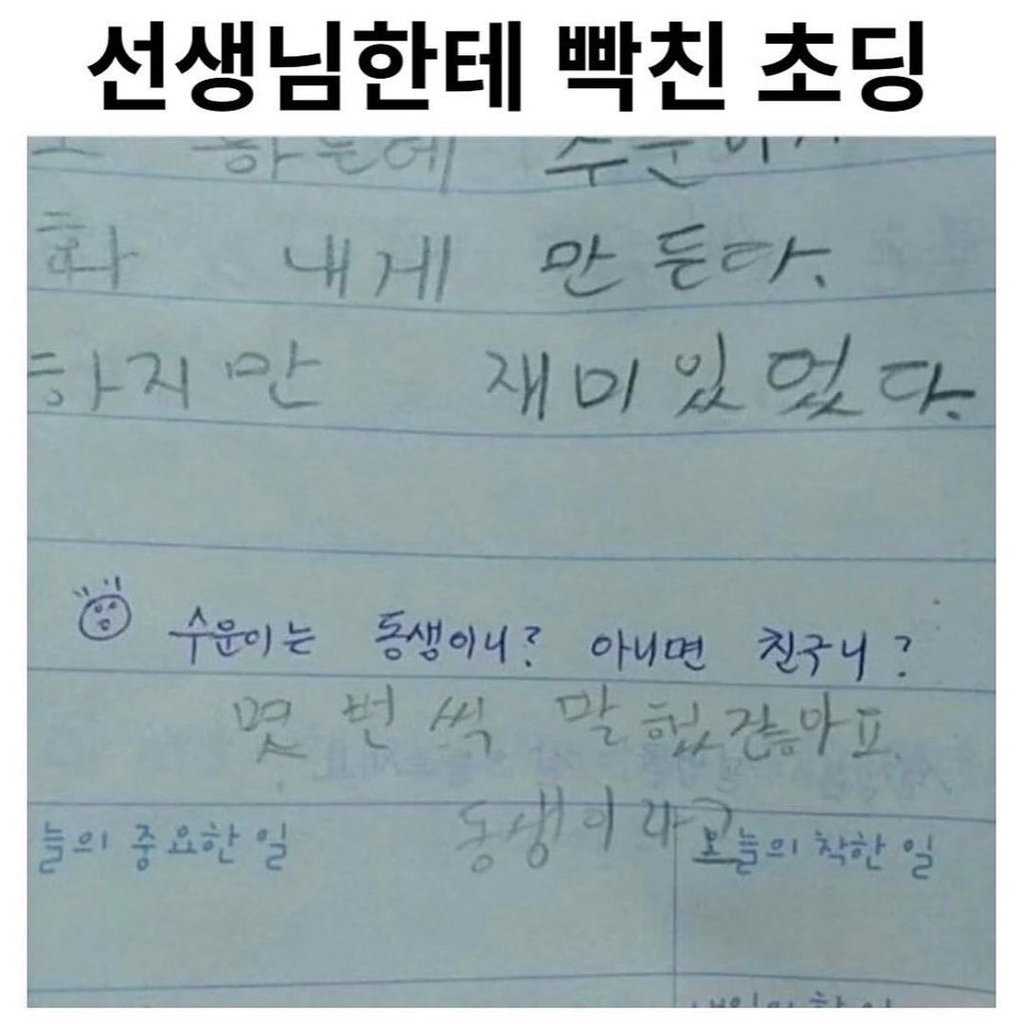 선생님한테 빡친 초딩
하는데
화 내게 만든다.
하지만 재미있었다.
수운이는 동생이니? 아니면 친구니?
몇 번 씩 말했잖아요
동생이라고
늘의 중요한 일
오늘의 착한 일